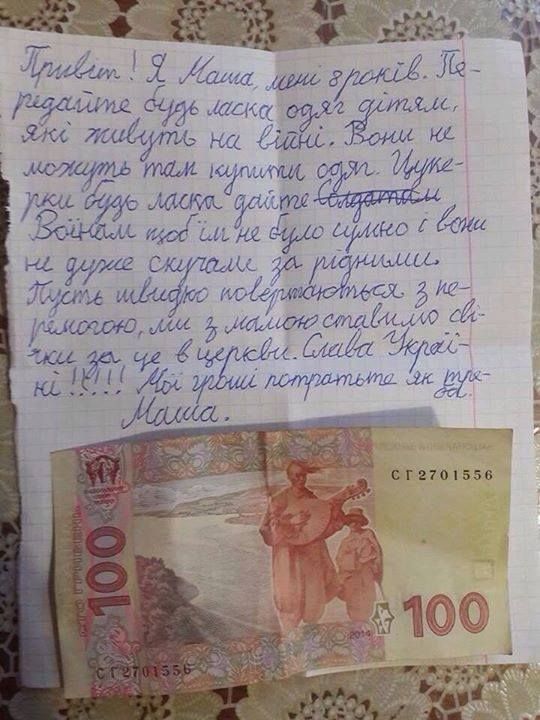 Привіт! Я Маша, мені 8 років. Пе-
редайте будь ласка одяг дітям,
які живуть на війні. Вони не
можуть там купити одяг. Цуке-
рки будь ласка дайте Солдатам
Воїнам щоб їм не було сумно і вони
не дуже скучали за рідними.
Пусть швидко повертаються з пе-
ремогою, ми з мамою ставимо сві-
чки за це в церкви. Слава Украї-
ні!!!!!! Мої гроші потратьте як тре-
ба.
Маша.
СГ2701556
100
100
2014
СГ2701556